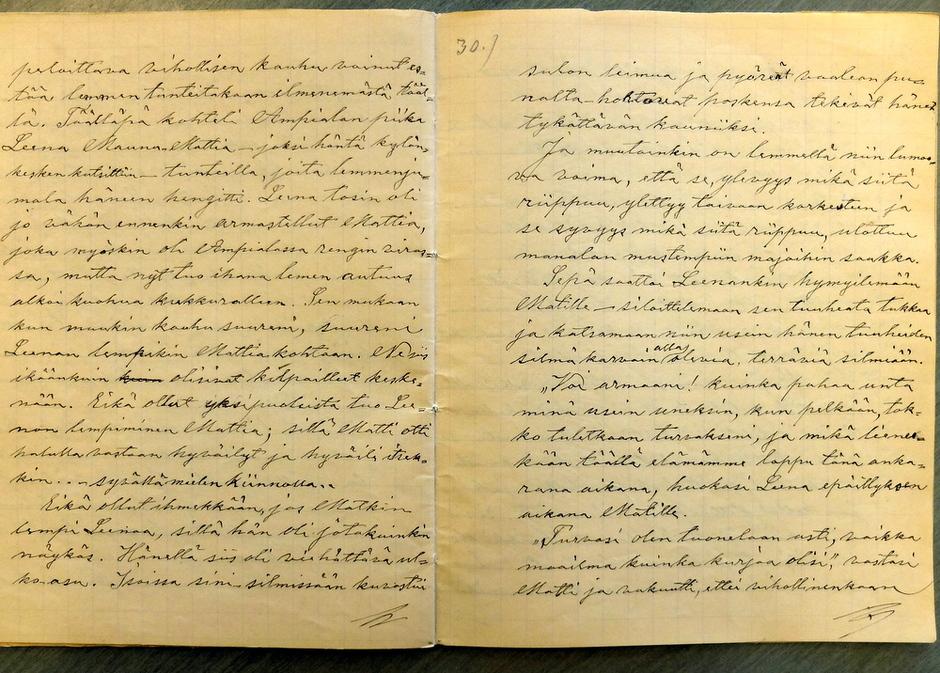 peloittava vihollisen kauhu voinut es=
tää lemmen tunteitakaan ilmenemästä tääl=
lä. Täälläpä kohteli Ampialan piika
Leena Mauna-Mattia – joksi häntä kylän
kesken kutsittiin – tunteilla, joita lemmenju=
mala häneen hengitti. Leena tosin oli
jo vähän ennenkin armastellut Mattia,
joka myöskin oli Ampialassa rengin viras=
sa, mutta nyt tuo ihana lemen autuus
alkoi kuohua kukkuralleen. Sen mukaan
kun muukin kauhu suureni, suureni
Leenan lempikin Mattia kohtaan. Ne siis
ikäänkuin olisivat kilpailleet keske=
nään. Eikä ollut yksipuoleista tuo Lee=
nan lempiminen Mattia; sillä Matti otti
halulla vastaan hyväilyt ja hyväili itsek=
kin... – sydällämielen kiinnolla..
Eikä ollut ihmekkään, jos Matkin
lempi Leenaa, sillä hän oli jotakuinkin
näykäs. Hänellä siis oli viehättävä ul=
koasu. Isoissa sini-silmissään kuvastui
30.)
sulon leimua ja pyöreät vaalean pu=
nalta hohtavat poskensa tekivät hänet
tykättävän kauniiksi.
Ja muutoinkin on lemmellä niin lumoa=
va voima, että se, ylevyys mikä siitä
riippuu, ylettyy taivaan korkeuteen ja
se syvyys mikä siitä riippuu, ulottuu
manalan mustempiin majoihin saakka.
Sepä saattoi Leenankin hymyilemään
Matille – silöittelemaan sen tuuheata tukkaa
ja katsomaan niin usein hänen tuuheiden
silmäkarvain alla olevia, terräviä silmiään.
„Voi armaani! kuinka pahaa unta
minä usein uneksin, kun pelkään, tok=
ko tuletkaan turvakseni, ja mikä lienee=
kään täällä elämämme loppu tänä anka=
rana aikana, huokasi Leena epäillyksen
aikana Matille.
„Turvasi olen tuonelaan asti, vaikka
maailma kuinka kurjaa olisi", vastasi
Matti ja vakuutti, ettei vihollinenkaan